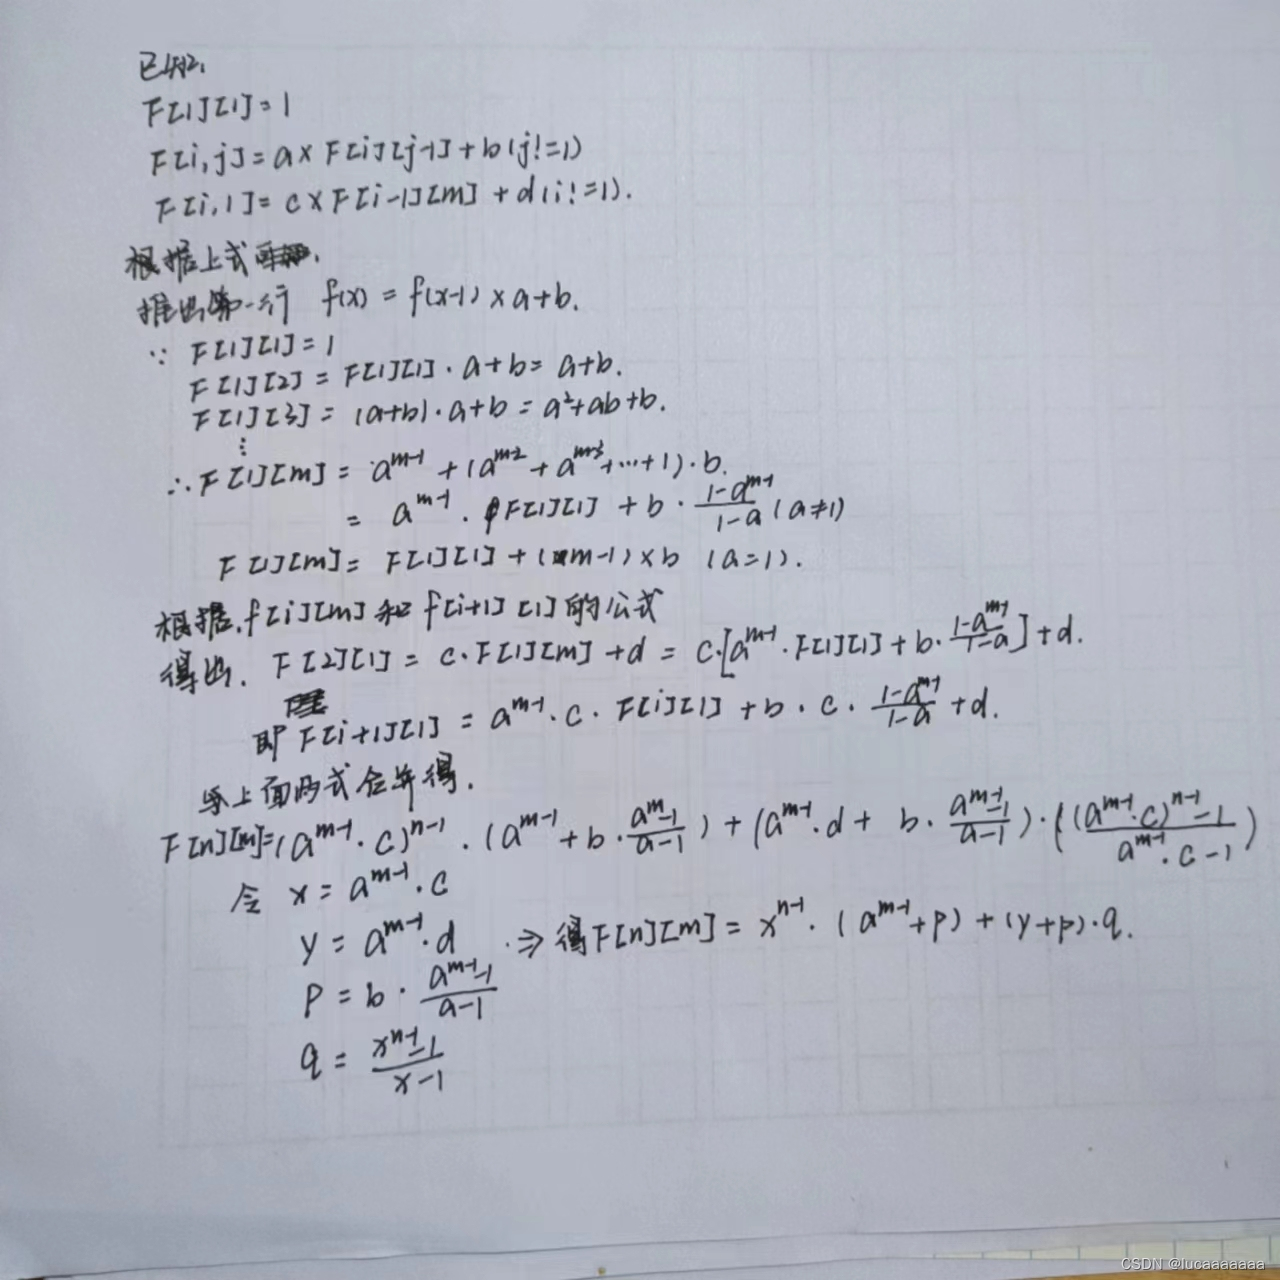 已知:
F[1][1]=1
F[i,j]=a×F[i][j-1]+b(j!=1)
F[i,1]=c×F[i-1][m]+d(i!=1).
根据上式
推出第一行 f(x)=f(x-1)×a+b.
∵ F[1][1]=1
F[1][2]=F[1][1]·a+b=a+b.
F[1][3]=(a+b)·a+b=a²+ab+b.
⋮
∴F[1][m]=a^{m-1}+(a^{m-2}+a^{m-3}+…+1)·b.
=a^{m-1}·F[1][1]+b·\frac{1-a^{m-1}}{1-a}(a≠1)
F[1][m]=F[1][1]+(m-1)×b (a=1).
根据.f[i][m]和f[i+1][1]的公式
得出. F[2][1]=c·F[1][m]+d=c·[a^{m-1}·F[1][1]+b·\frac{1-a^{m-1}}{1-a}]+d.
即F[i+1][1]=a^{m-1}·c·F[i][1]+b·c·\frac{1-a^{m-1}}{1-a}+d.
上面两式合并得.
F[n][m]=(a^{m-1}·c)^{n-1}·(a^{m-1}+b·\frac{a^{m-1}-1}{a-1})+(a^{m-1}·d+b·\frac{a^{m-1}-1}{a-1})·(\frac{(a^{m-1}·c)^{n-1}-1}{a^{m-1}·c-1})
令 x=a^{m-1}·c
y=a^{m-1}·d ⇒得F[n][m]=x^{n-1}·(a^{m-1}+p)+(y+p)·q.
p=b·\frac{a^{m-1}-1}{a-1}
q=\frac{x^{n-1}-1}{x-1}
CSDN @lucaaaaaaa